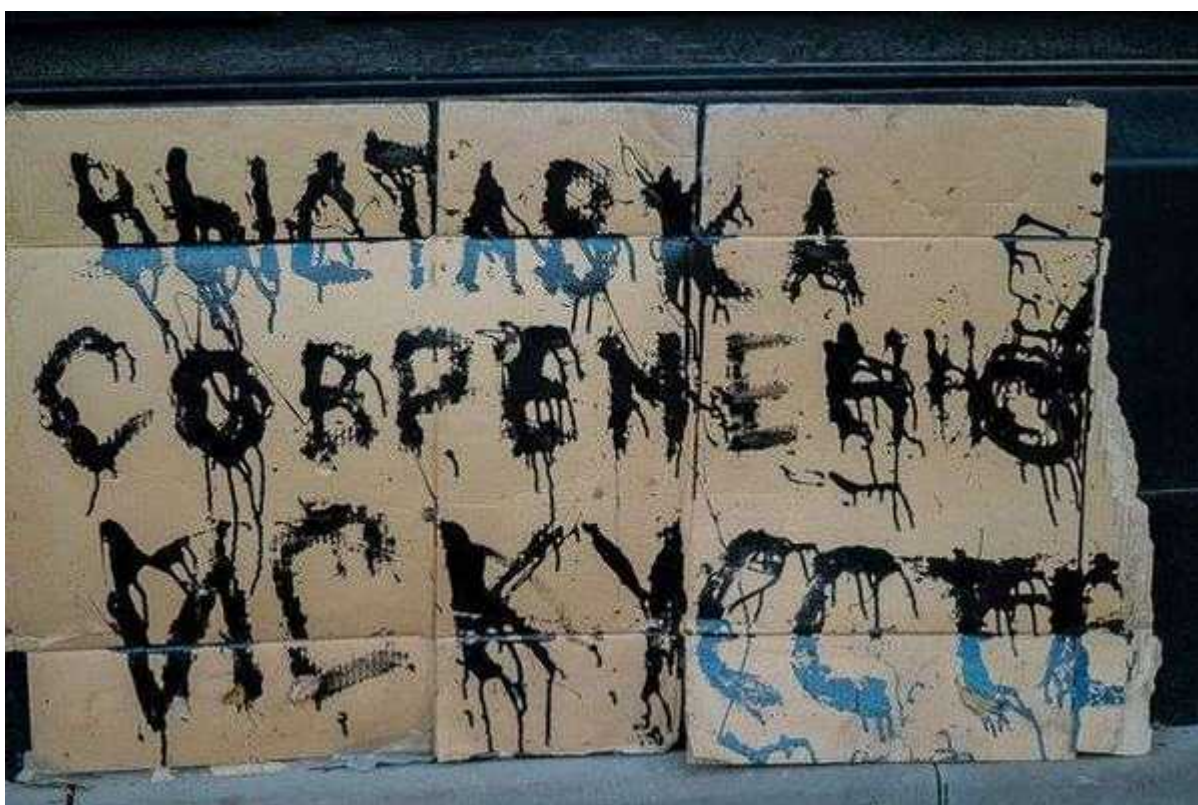 ВЫСТАВКА
СОВРЕМЕННО
ИСКУССТВ